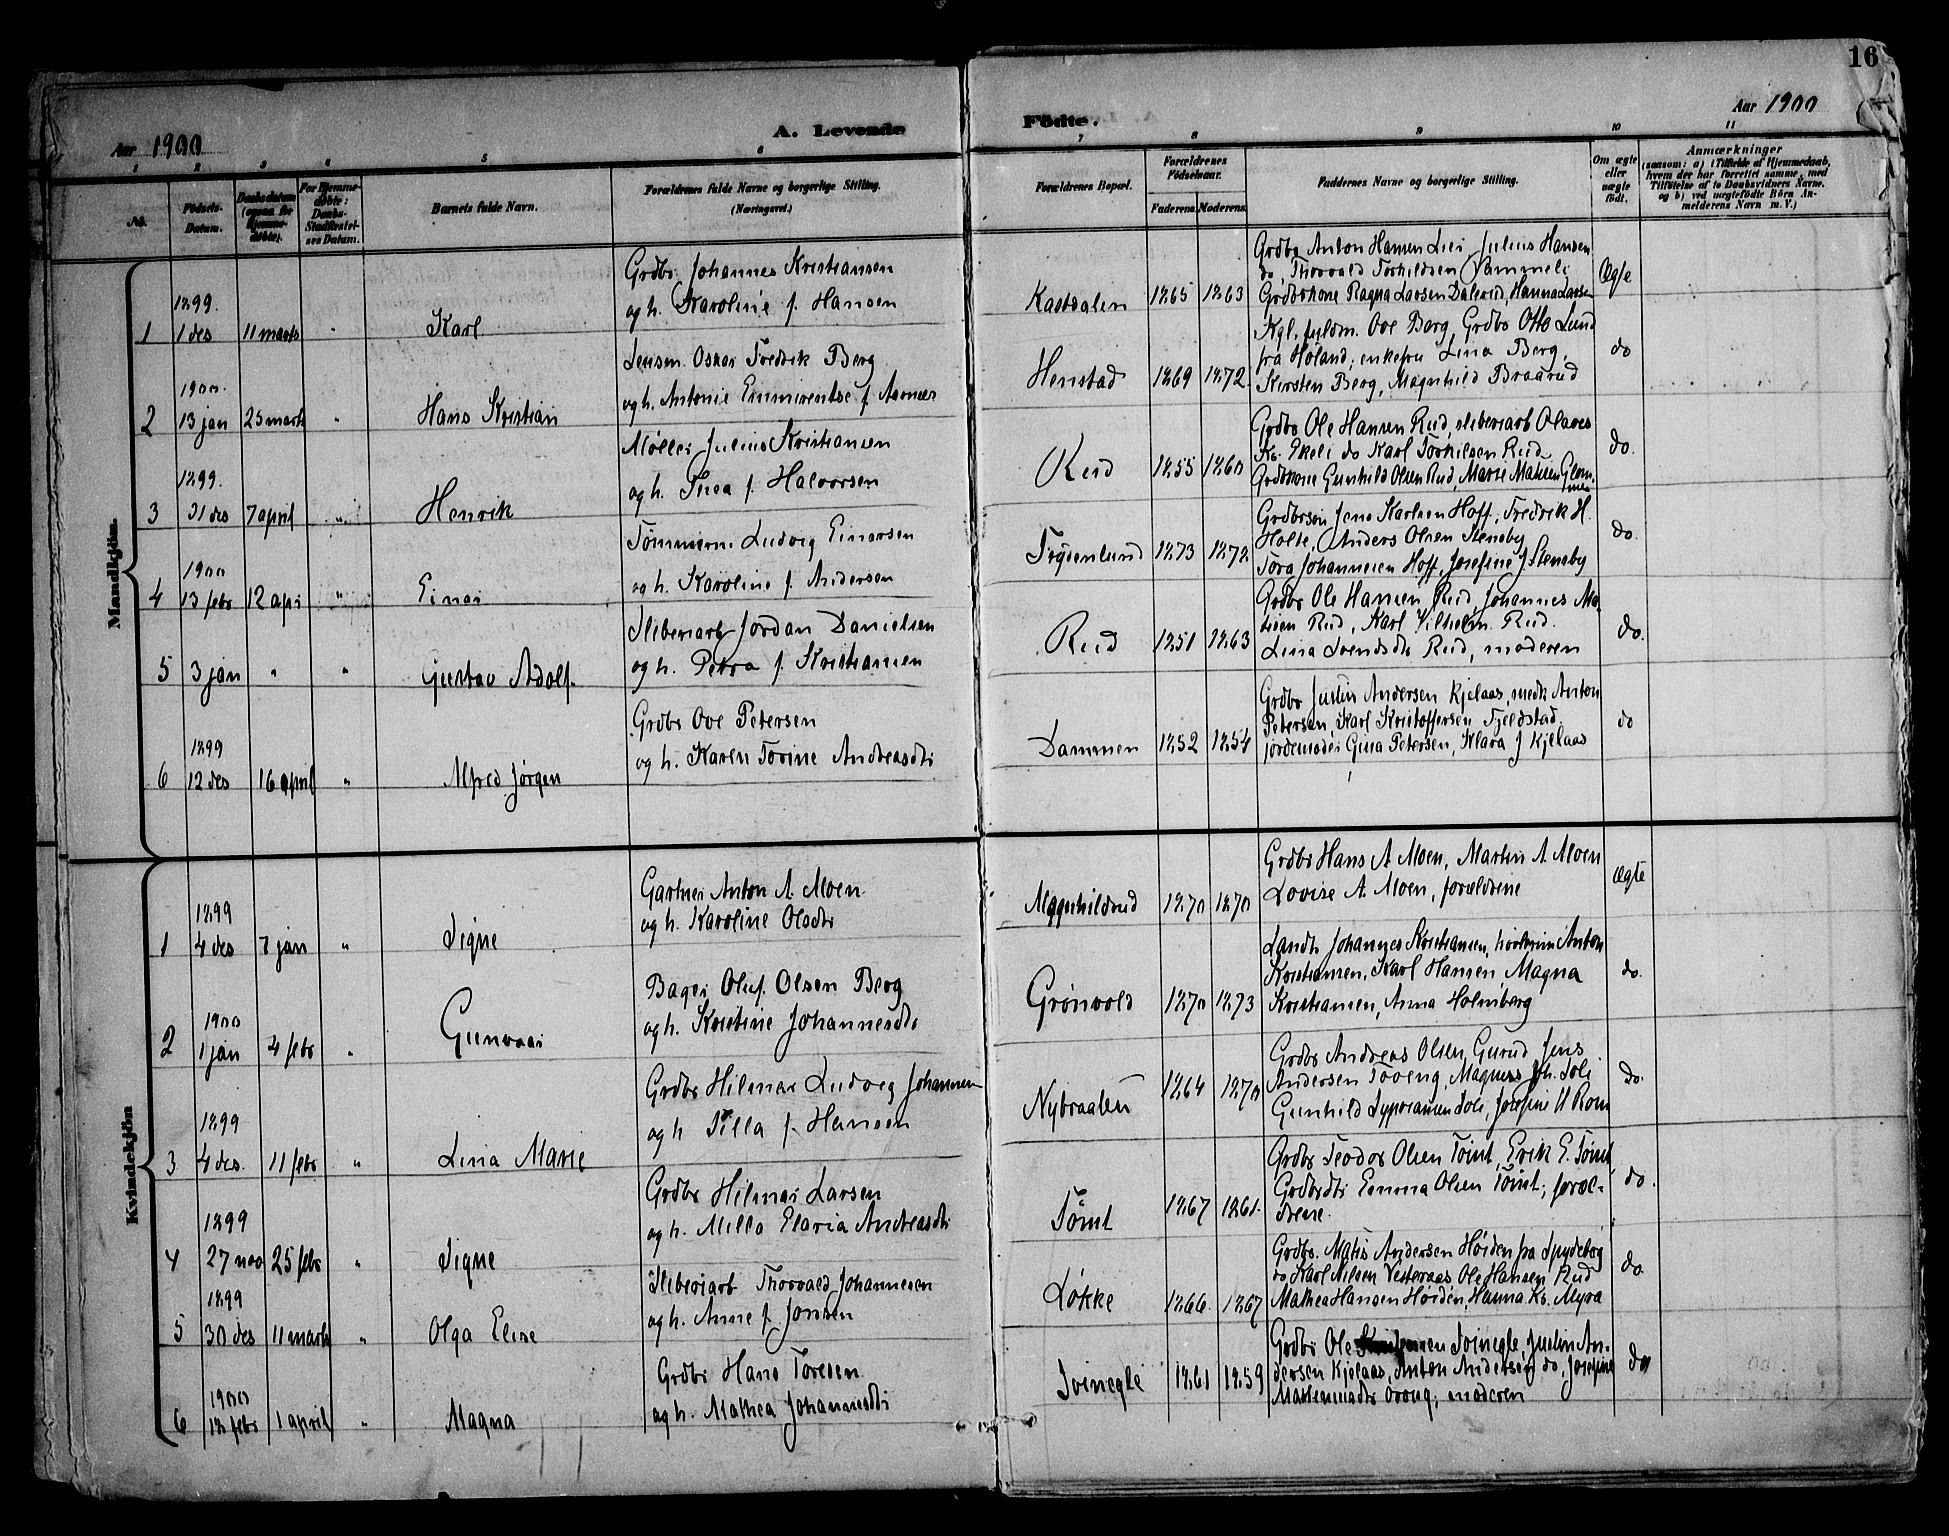 16
Aar 1900
A. Levende Födte.
Aar 1900
1 2 3 4 5 6 7 8 9 10 11
No.
Födsels-Datum.
Daabsdatum (ogsaa for Hjemmedöbte).
For Hjemmedöbte: Daabs-Stadfæstelses Datum.
Barnets fulde Navn.
Forældrenes fulde Navne og borgerlige Stilling. (Næringsvei.)
Forældrenes Bopæl.
Forældrenes Födselsaar.
Faderens. Moderens.
Faddernes Navne og borgerlige Stilling.
Om ægte eller uægte födt.
Anmærkninger
(saasom: a) i Tilfælde af Hjemmedaab, hvem der har forrettet samme, med Tilföielse af to Daabsvidners Navne, og b) ved uægtefödte Börn Anmelderens Navn m. V.)
Mandkjön.
1 1899. 1 des 11 marts " Karl
Grdbr. Johannes Kristiansen
og h. Karoline f. Hansen
Kastdalen 1865 1863
Grdbr Anton Hansen Lier, Julius Hansen
do, Thorvald Torkildsen Sammeli
Grdbrkone Ragna Larsen Dalerud, Hanna Larsen
Ægte
2 1900. 13 jan 25 marts " Hans Kristian
Lensm. Oskar Fredrik Berg
og h. Antonie Emmerentse f. Aarnæs
Henstad 1869 1872.
Kgl. fuldm. Ove Berg, Grdbr Otto Lund
fra Høland, enkefru Lina Berg,
Kirsten Berg, Magnhild Braarud
do
3 1899. 31 des 7 april " Henrik
Møller Julius Kristiansen
og h. Thea f. Halvorsen
Rud 1855 1860
Grdbr Ole Hansen Rud, sliberiarb Olaves
Kr. Ekeli do Karl Torkilsen Rud
Grdbrkone Gunhild Olsen Rud, Marie Madsen Glom-
do.
4 1900 13 febr 12 apr " Einar
Tømmerm. Ludvig Einarsen
og h. Karoline f. Andersen
Frydenlund 1873 1872
Grdbrsøn Jens Karlsen Hoff, Fredrik H.
Holte, Anders Olsen Stensby
Tora Johannesen Hoff, Josefine J. Stensby
do.
5 3 jan " " Gustav Adolf.
Sliberiarb Jordan Danielsen
og h. Petra f. Kristiansen
Rud 1851 1863
Grdbr Ole Hansen Rud, Johannes Ma-
tisen Rud, Karl Vilhelm. Rud.
Lina Svendsdtr Rud, moderen
do.
6 1899 12 des 16 april " Alfred Jørgen
Grdbr Ove Petersen
og h. Karen Torine Andreasdtr
Dammen 1852 1854
Grdbr Justin Andersen Kjelaas, medh Anton
Petersen, Karl Kristoffersen Fjeldstad.
jordemoder Gina Petersen, Klara J Kjelaas
do
Kvindekjön
1 1899 4 des 7 jan " Signe
Gartner Anton A. Moen.
og h. Karoline Olsdtr
Magnhildrud 1870 1870
Grdbr Hans A Moen, Martin A Moen
Lovise A. Moen, forældrene
ægte
2 1900 1 jan 4 febr " Gunvaar
Bager Oluf. Olsen Berg
og h. Kristine Johannesdtr
Grønvold 1870 1873
Landh. Johannes Kristiansen, Anton
Kristiansen, Karl Hansen Magna
Kristiansen, Anna Holmberg
do.
3 1899 4 des. 11 febr " Lina Marie
Grdbr Hilmar Ludvig Johannesen
og h Tilla f. Hansen
Nybraaten 1864 1870
Grdbr Andreas Olsen, Gurud Jens
Andersen Toveng, Magnus Joh. Soli
Gunhild Syversen Soli, Josefine H Rom
do.
4 1899 27 nov 25 febr " Signe
Grdbr Hilmar Larsen
og h. Milla Elaria Andreasdtr
Tømt 1867 1861.
Grdbr Teodor Olsen Tømt, Erik E. Tømt,
Grdbrdtr Emma Olsen Tømt, foræl-
drene.
do.
5 1899 30 des 11 marts " Olga Elise
Sliberiarb Thorvald Johannesen
og h. Anne f. Jonsen
Løkke 1866. 1867
Grdbr. Matis Andersen Høiden fra Spydeberg
do Karl Nilsen Vesteraas, Ole Hansen Rud
Mathea Hansen Høiden, Hanna Kr. Myra
do.
6 1900 18 febr 1 april " Magna
Grdbr Hans Toresen.
og h. Mathea Johannesdtr
Svinegle 1861 1859
Grdbr Ole Svinegle, Justin An-
dersen Kjelaas, Anton Andersen do, Josefine
moderen
do